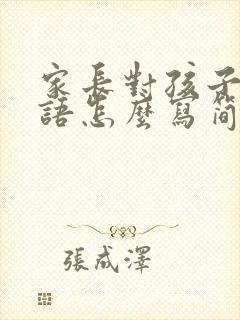 家長對孩子
語怎麼寫簡
張成澤